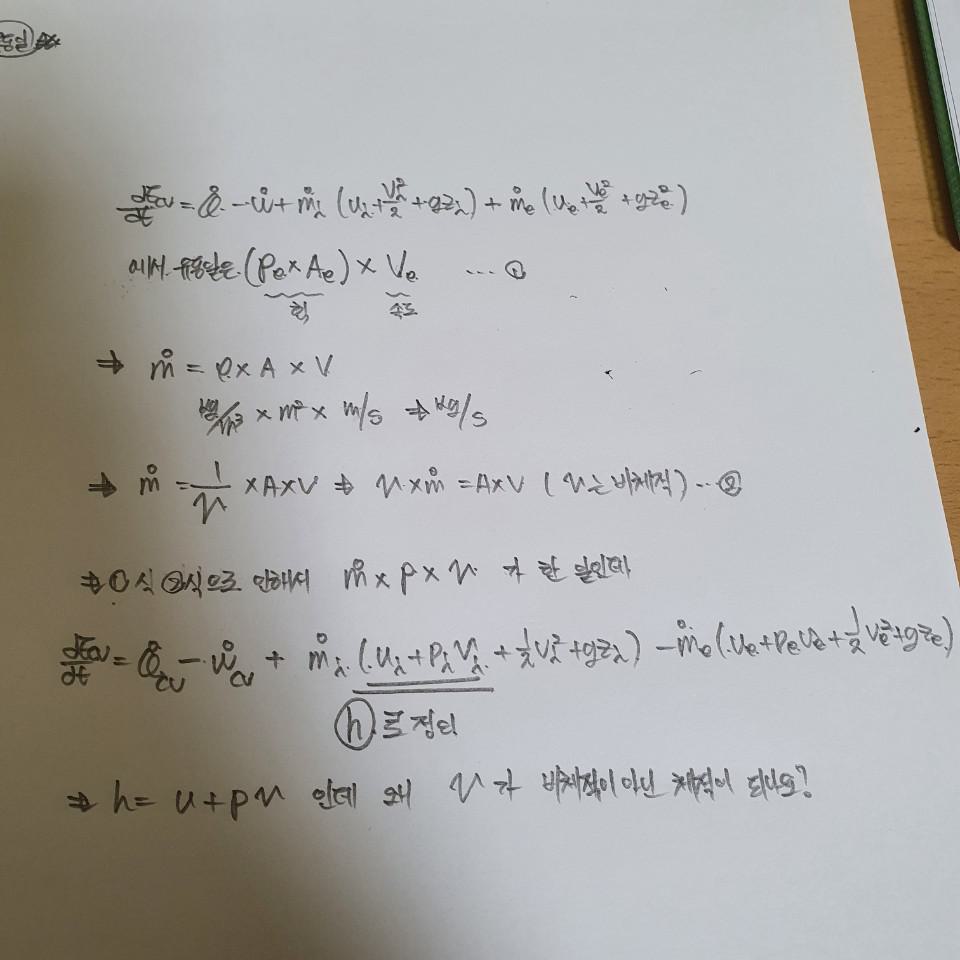 dEcv/dt = Q̇ - ẇ + ṁi (ui + Vi²/2 + gzi) + ṁe (ue + Ve²/2 + gze²)
에서 유동일은 (Pe × Ae) × Ve ... ①
힘 속도
⇒ ṁ = ρ × A × V
kg/m³ × m² × m/s ⇒ kg/s
⇒ ṁ = 1/v × A × V ⇒ v × ṁ = A × V (v는 비체적) ... ②
⇒ ①식 ②식으로 인해서 ṁ × P × v 가 한 일인데
dEcv/dt = Q̇cv - Ẇcv + ṁi (ui + PiVi + 1/2 Vi² + gzi) - ṁe (ue + Peve + 1/2 Ve² + gze)
ⓗ로 정의
⇒ h = u + pv 인데 왜 v가 비체적이 아닌 체적이 되나요?